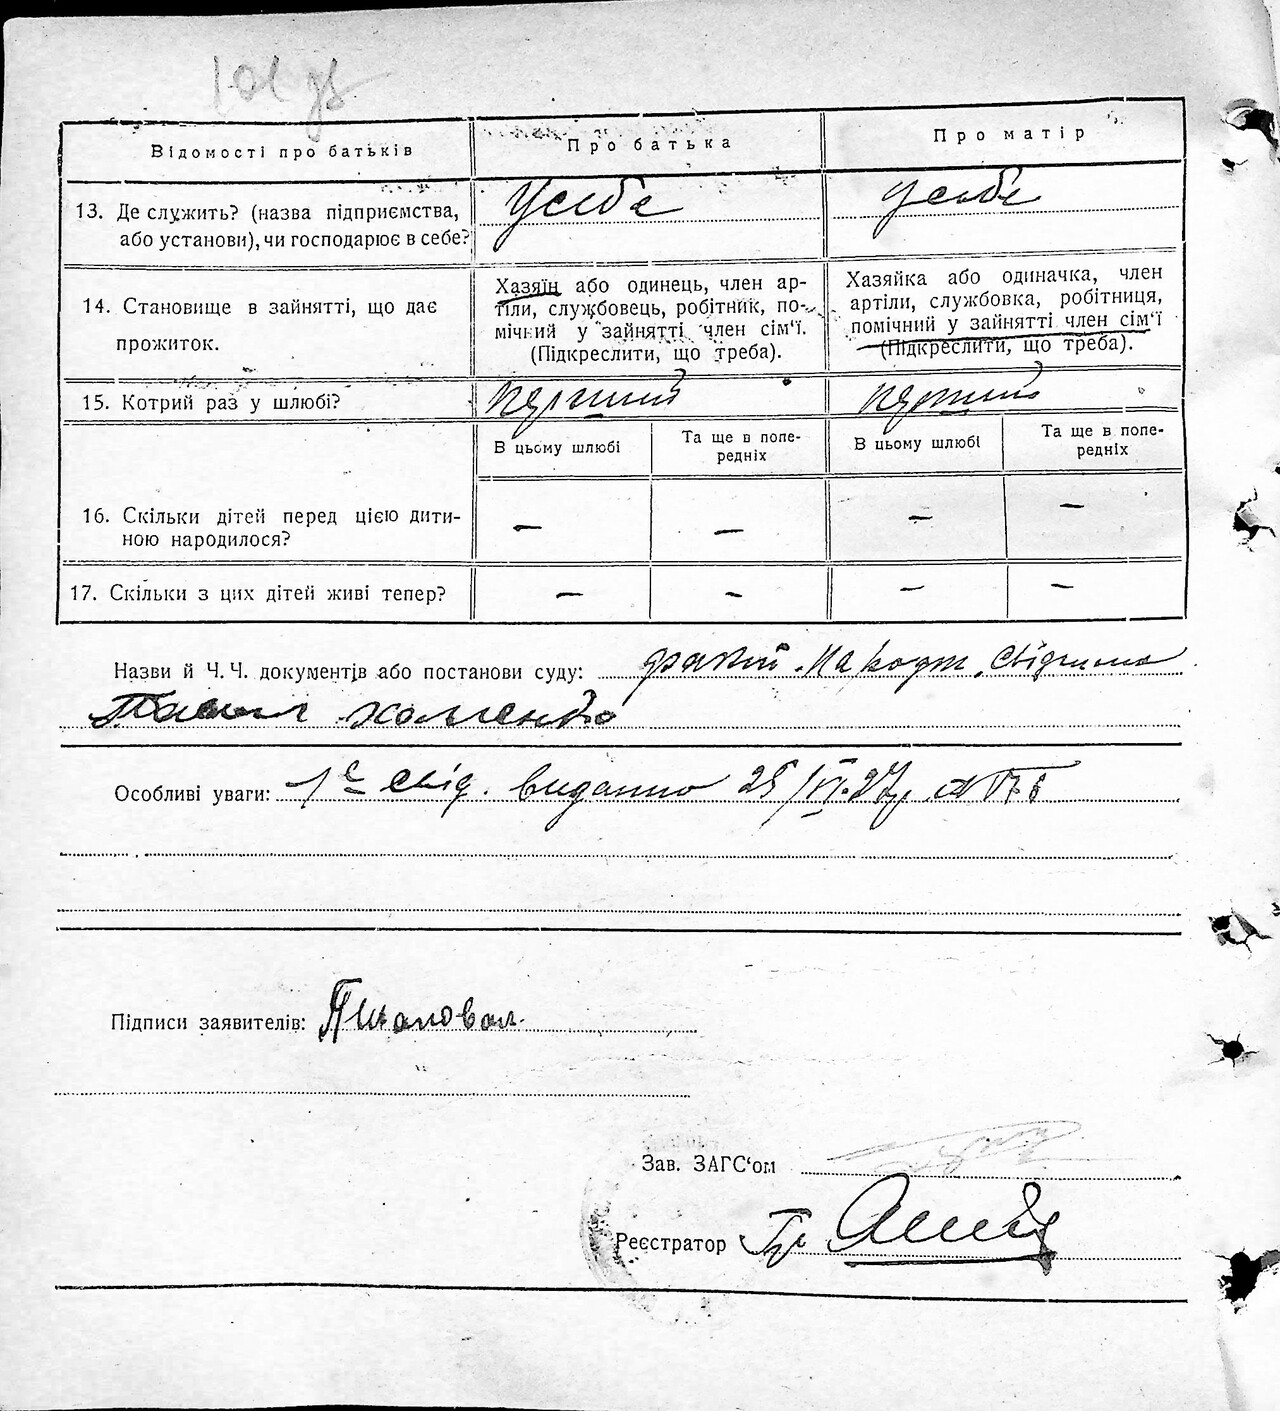 Відомості про батьків
Про батька
Про матір
13. Де служить? (назва підприємства,
або установи), чи господарює в себе?
У себе
у себе
14. Становище в зайнятті, що дає
прожиток.
Хазяїн або одинець, член ар-
тіли, службовець, робітник, по-
мічний у зайнятті член сім'ї.
(Підкреслити, що треба).
Хазяйка або одиначка, член
артіли, службовка, робітниця,
помічний у зайнятті член сім'ї
(Підкреслити, що треба).
15. Котрий раз у шлюбі?
перший
перший
В цьому шлюбі
Та ще в попе-
редніх
В цьому шлюбі
Та ще в попе-
редніх
16. Скільки дітей перед цією дити-
ною народилося?
— — — —
17. Скільки з цих дітей живі тепер?
— — — —
Назви й Ч. Ч. документів або постанови суду: народж. свідчила
Особливі уваги: свід. виданно 25/VI.27р.
Підписи заявителів: Пшаповал.
Зав. ЗАГС'ом
Реєстратор